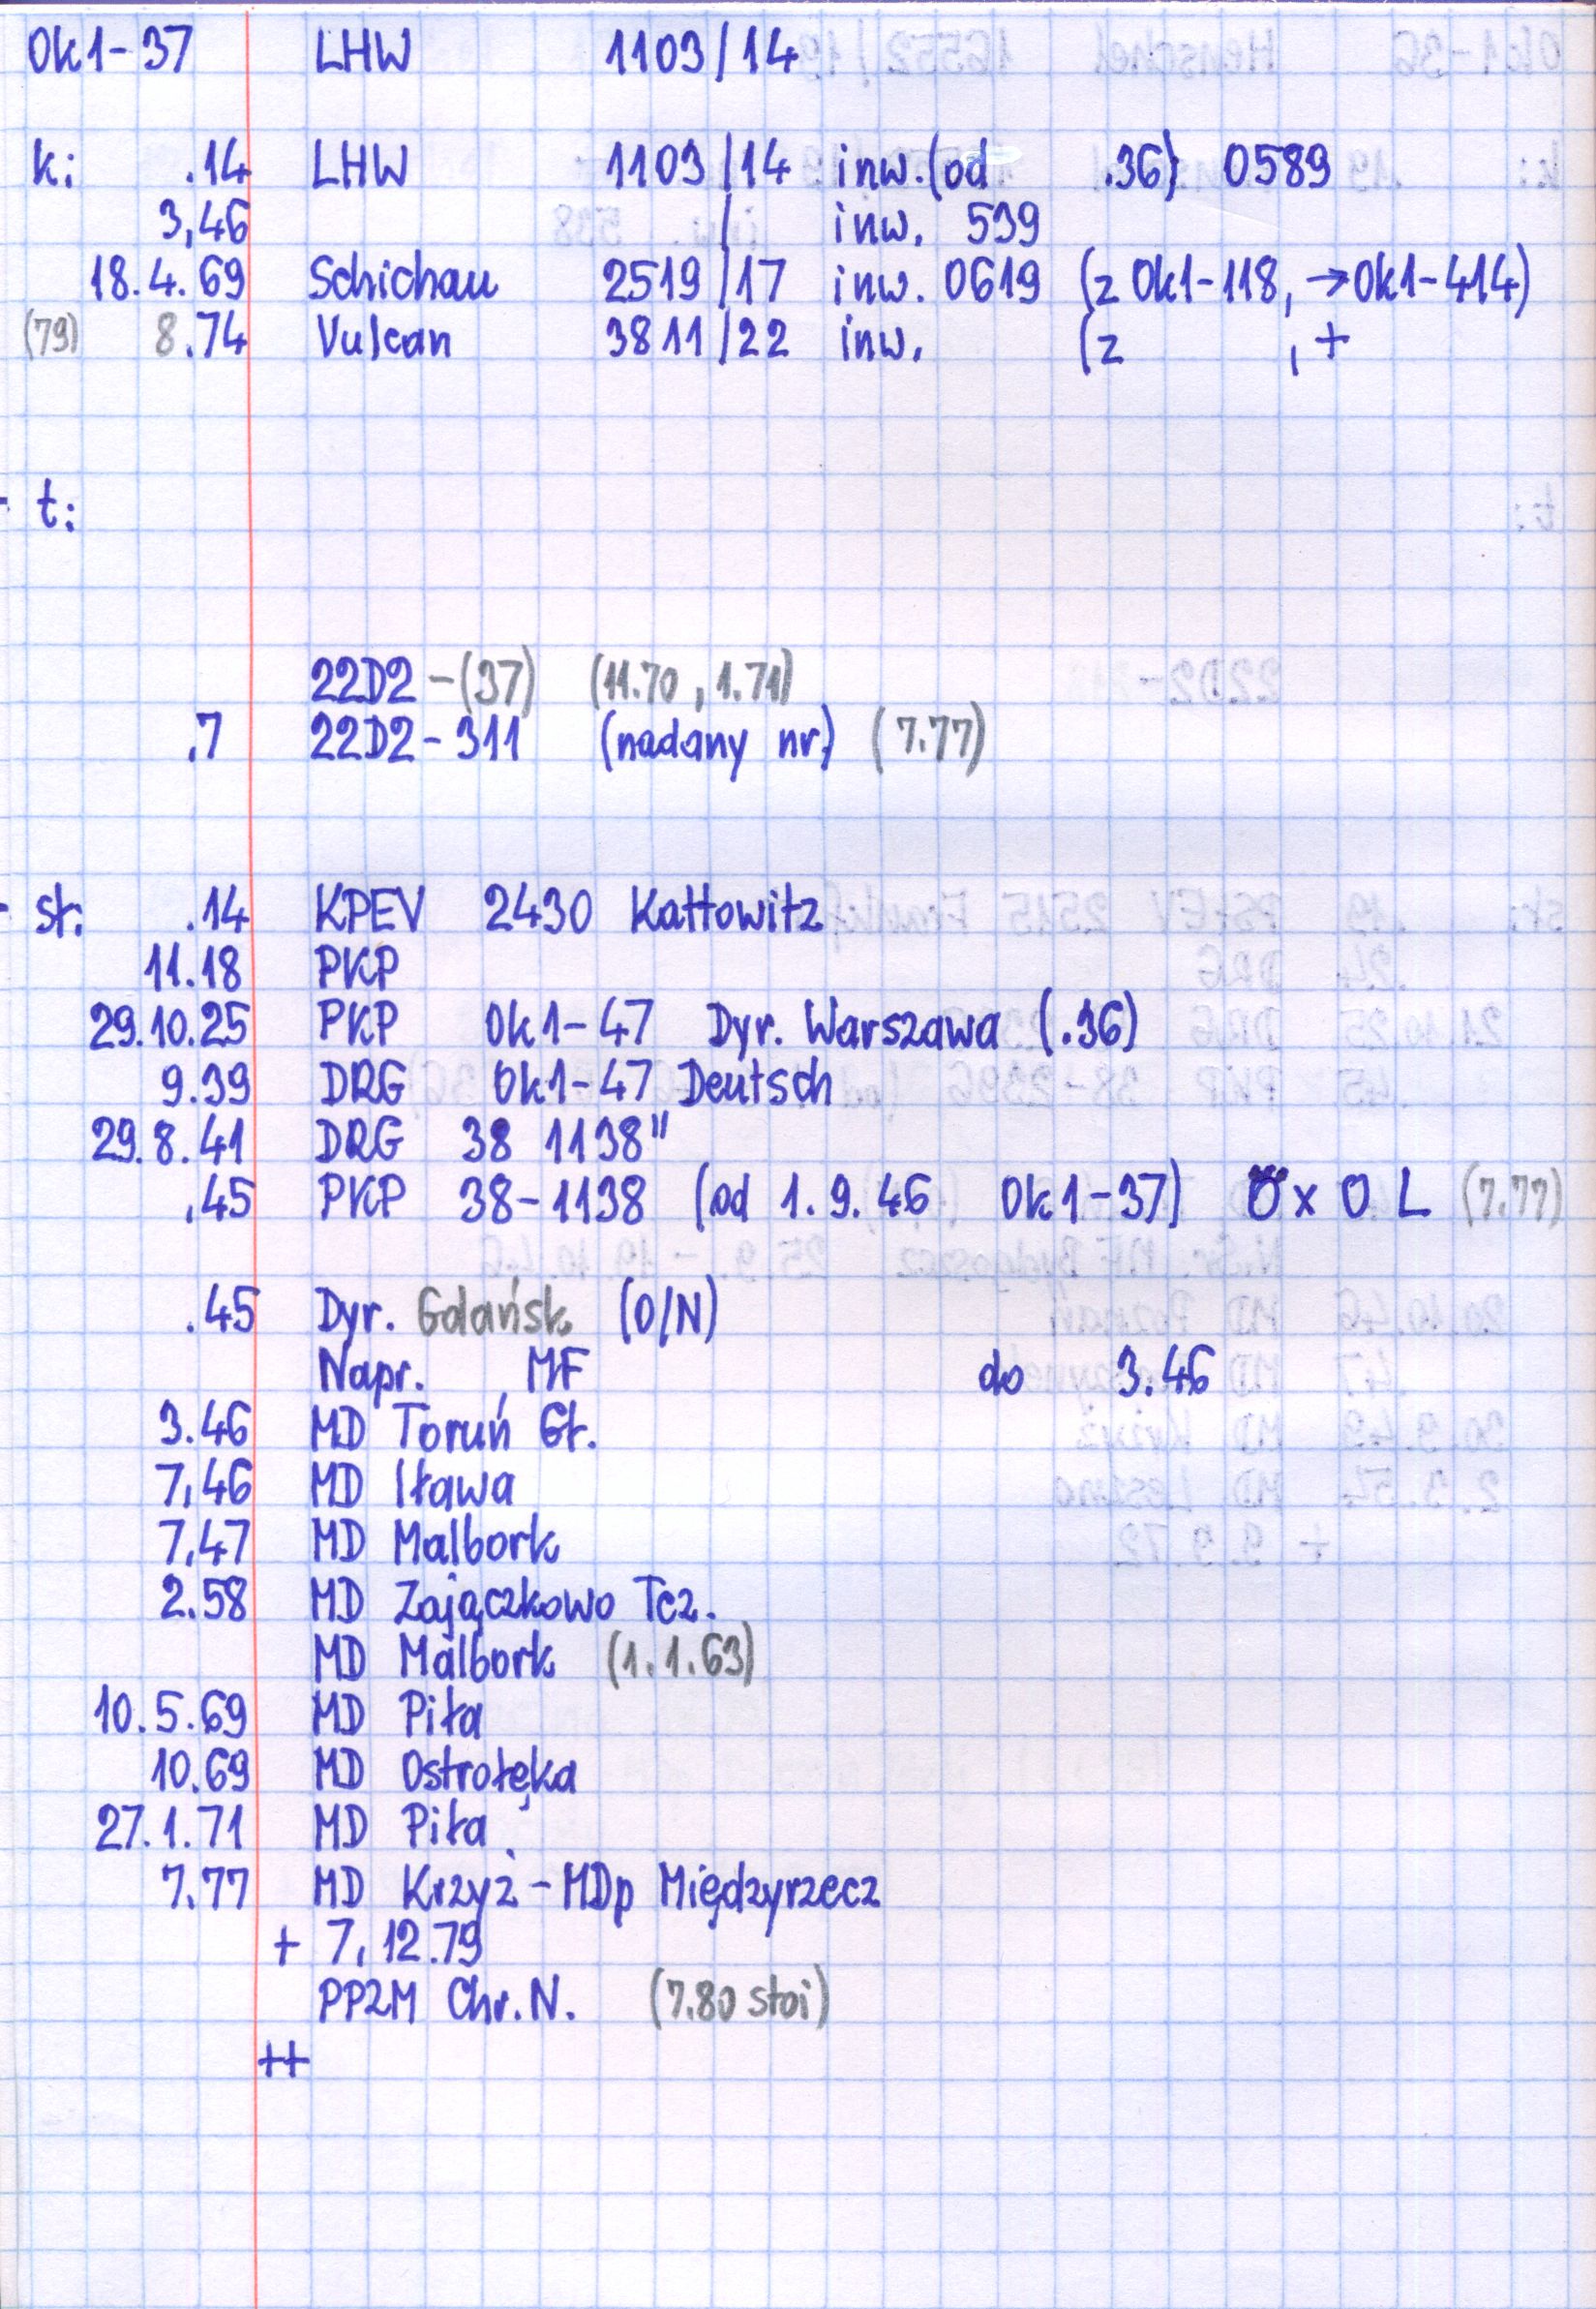 Ok1-37 LHW 1103/14
k: .14 LHW 1103/14 inw.(od .36) 0589
3,46 / inw. 539
18.4.69 Schichau 2519/17 inw. 0619 (z Ok1-118, →Ok1-414)
(79) 8.74 Vulcan 3811/22 inw. (z , +
t:
22D2-(37) (11.70, 1.71)
.7 22D2-311 (nadany nr) (7.77)
st. .14 KPEV 2430 Kattowitz
11.18 PKP
29.10.25 PKP Ok1-47 Dyr. Warszawa (.36)
9.39 DRG Ok1-47 Deutsch
29.8.41 DRG 38 1138"
.45 PKP 38-1138 (od 1.9.46 Ok1-37) O x O L (7.77)
.45 Dyr. Gdańsk (O/N)
Napr. MF do 3.46
3.46 MD Toruń Gł.
7,46 MD Iława
7,47 MD Malbork
2.58 MD Zajączkowo Tcz.
MD Malbork (1.1.63)
10.5.69 MD Piła
10.69 MD Ostrołęka
27.1.71 MD Piła
7.77 MD Krzyż - MDp Międzyrzecz
+ 7,12.79
PPZM Chr.N. (7.80 stoi)
++